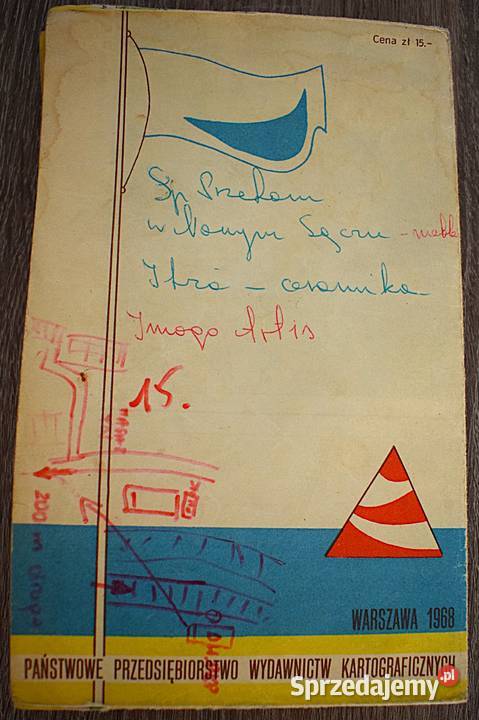 Cena zł 15.-
w Nowym Sączu - mebl
Iłża - ceramika
Imago Artis
15.
200 m
WARSZAWA 1968
PAŃSTWOWE PRZEDSIĘBIORSTWO WYDAWNICTW KARTOGRAFICZNYCH
Sprzedajemy.pl